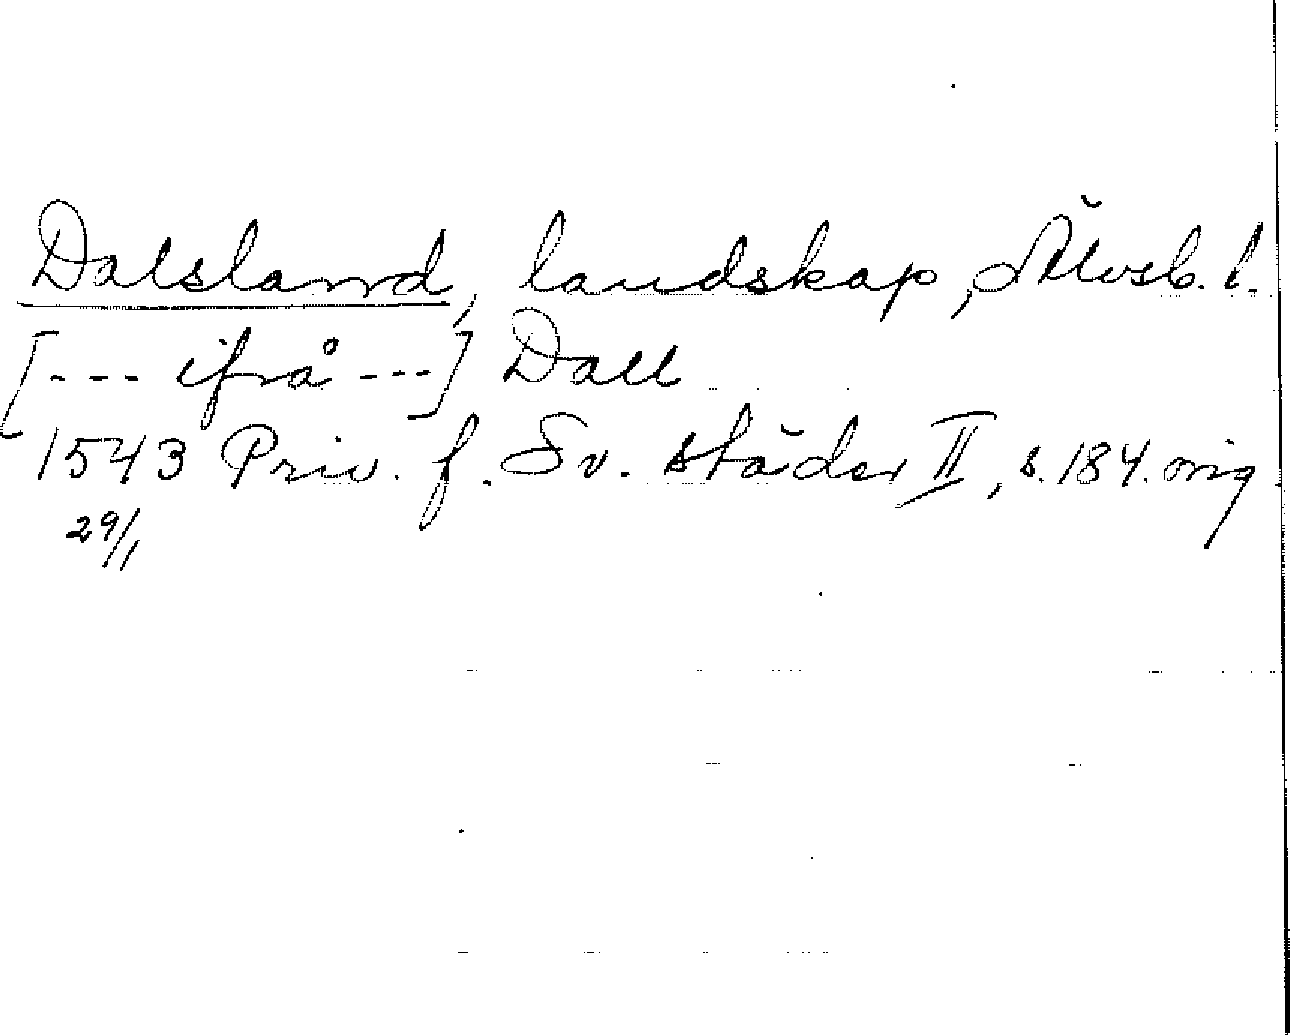 Dalsland, landskap, Älvsb. l.
[--- ifrå ---] Dall
1543 Priv. f. Sv. städer II, s. 184. orig.
29/1